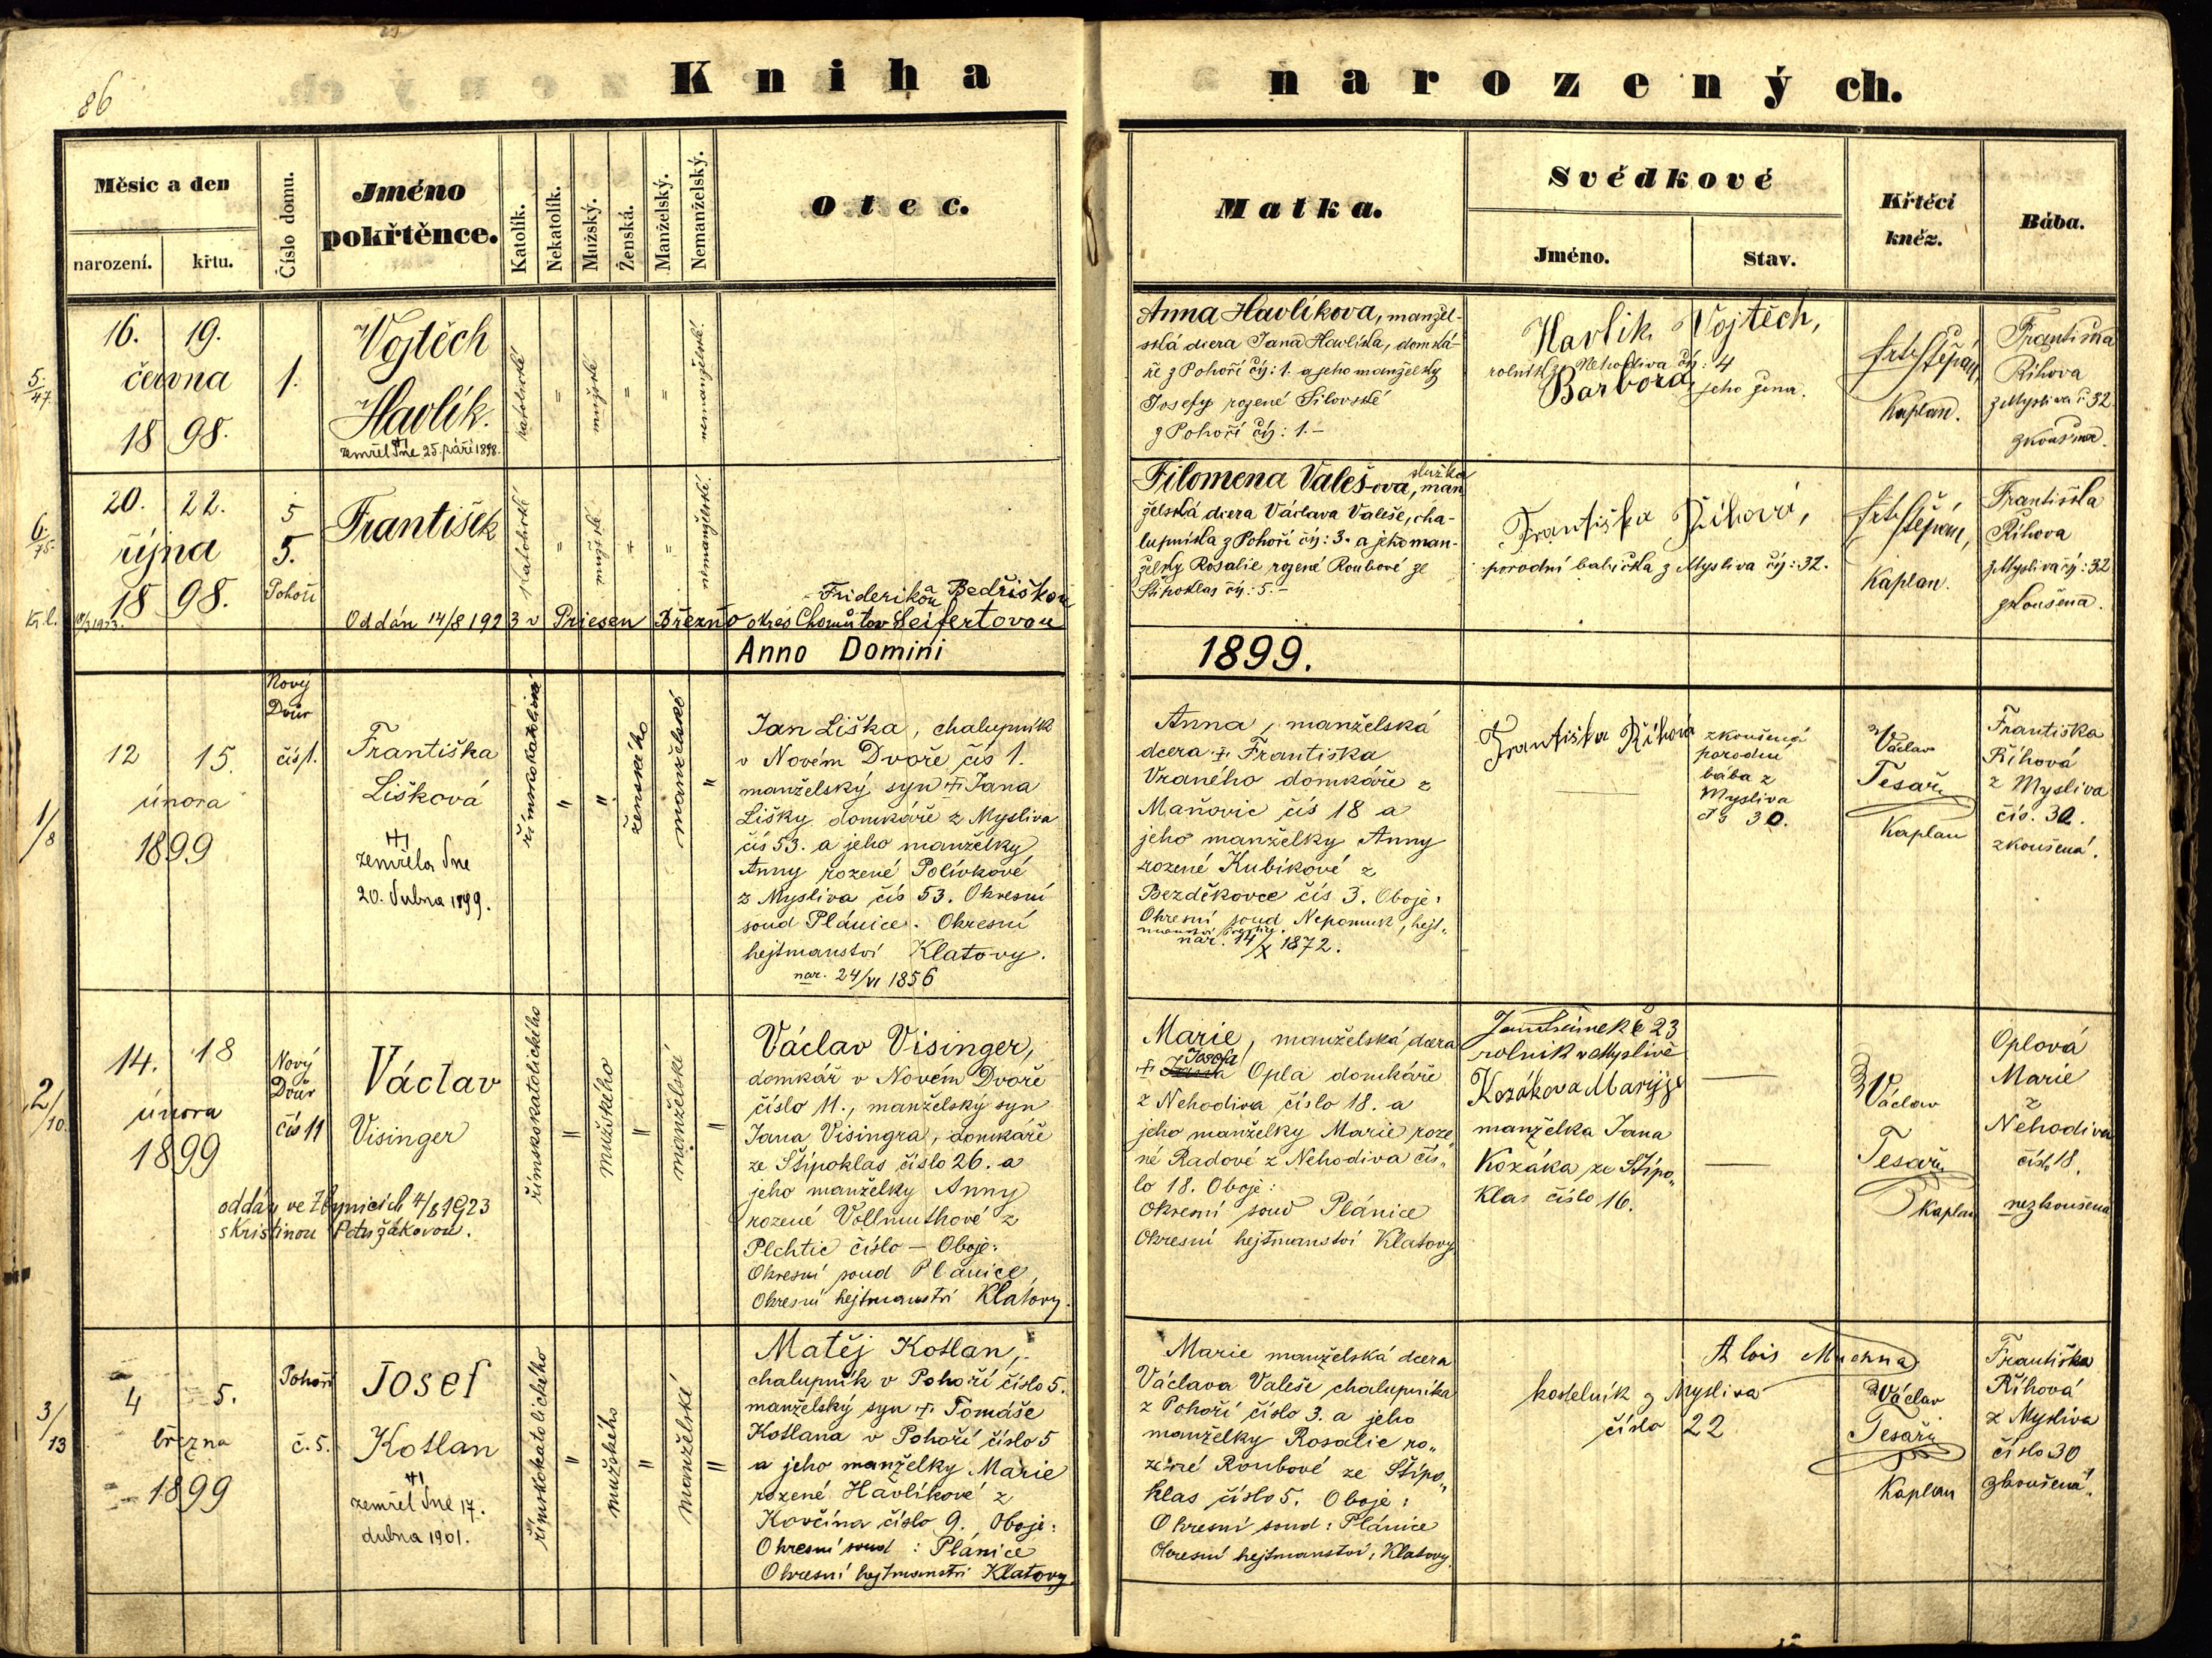 86
Kniha narozených.
Měsíc a den
narození.
křtu.
Číslo domu.
Jméno
pokřtěnce.
Katolík.
Nekatolík.
Mužský.
Ženská.
Manželský.
Nemanželský.
Otec.
Matka.
Svědkové
Jméno.
Stav.
Křtěcí
kněz.
Bába.
5./47.
16. 19.
června
1898.
1.
Vojtěch
Havlík.
zemřel dne 25. září 1898.
katolické
"
mužské
"
"
nemanželské.
Anna Havlíkova, manžel-
ská dcera Jana Havlíka, domká-
ře z Pohoří čís: 1. a jeho manželky
Josefy rozené Silovské
z Pohoří čís: 1.-
Havlík Vojtěch,
rolník z Nehodiva čís: 4
Barbora, jeho žena.
Štěpán,
Kaplan.
Františka
Říhova
z Mysliva č. 32
zkoušená.
6./75.
20. 22.
října
1898.
5
5.
Pohoří
František
katolické
"
mužské
"
"
nemanželské.
Filomena Valeš-ova, služka
man
želská dcera Václava Valeše, cha-
lupníka z Pohoří čís: 3. a jeho man-
želky Rosalie rozené Roubové ze
Štipoklas čís: 5.-
Františka Říhová,
porodní babička z Mysliva čís: 32.
Štěpán,
Kaplan.
Františka
Říhova
z Mysliva čís: 32
zkoušená.
Friderikou Bedřiškou
Oddán 14/8 1923 v Priesen Březno okres Chomůtov Seifertovou
Anno Domini 1899.
1/8
12 15.
února
1899
Nový
Dvůr
čís 1.
Františka
Lišková
zemřela dne
20. dubna 1899.
římskokatolické
"
"
ženského
manželské
"
Jan Liška, chalupník
v Novém Dvoře čís 1.
manželský syn † Jana
Lišky domkáře z Mysliva
čís 53. a jeho manželky
Anny rozené Polívkové
z Mysliva čís 53. Okresní
soud Plánice. Okresní
hejtmanství Klatovy.
nar. 24/VI 1856
Anna, manželská
dcera † Františka
Vraného domkáře z
Maňovic čís 18 a
jeho manželky Anny
rozené Kubíkové z
Bezděkovce čís 3. Oboje:
Okresní soud Nepomuk, hejt-
nar. 14/X 1872.
Františka Říhová
zkoušená
porodní
bába z
Mysliva
čís 30.
Václav
Tesař
Kaplan
Františka
Říhová
z Mysliva
čís. 30.
zkoušená.
2/10.
14. 18
února
1899
Nový
Dvůr
čís 11
Václav
Visinger
oddán ve Zbynicích 4/8 1923
s Kristinou Petržákovou.
římskokatolického
"
mužského
"
manželské
"
Václav Visinger,
domkář v Novém Dvoře
číslo 11., manželský syn
Jana Visingra, domkáře
ze Štipoklas číslo 26. a
jeho manželky Anny
rozené Vollmuthové z
Plchtic číslo — Oboje:
Okresní soud Plánice,
Okresní hejtmanství Klatovy.
Marie, manželská dcera
Josefa
† Opla domkáře
z Nehodiva číslo 18. a
jeho manželky Marie roze-
né Radové z Nehodiva čís-
lo 18. Oboje:
Okresní soud Plánice
Okresní hejtmanství Klatovy.
č 23
rolník v Myslivě
Kozákova Marije
manželka Jana
Kozáka ze Štipo-
klas číslo 16.
Václav
Tesař
Kaplan
Oplová
Marie
z
Nehodiva
čís. 18.
nezkoušená
3/13
4 5.
března
1899
Pohoří
č. 5.
Josef
Kotlan
zemřel dne 17.
dubna 1901.
římskokatolického
"
mužského
"
manželské
"
Matěj Kotlan,
chalupník v Pohoří číslo 5.
manželský syn † Tomáše
Kotlana v Pohoří číslo 5
a jeho manželky Marie
rozené Havlíkové z
Kovčína číslo 9. Oboje:
Okresní soud: Plánice
Okresní hejtmanství Klatovy.
Marie manželská dcera
Václava Valeše chalupníka
z Pohoří číslo 3. a jeho
manželky Rosalie ro-
zené Roubové ze Štipo-
klas číslo 5. Oboje:
Okresní soud: Plánice
Okresní hejtmanství, Klatovy.
Alois Muchna
kostelník z Mysliva
číslo 22
Václav
Tesař
Kaplan
Františka
Říhová
z Mysliva
číslo 30
zkoušená.